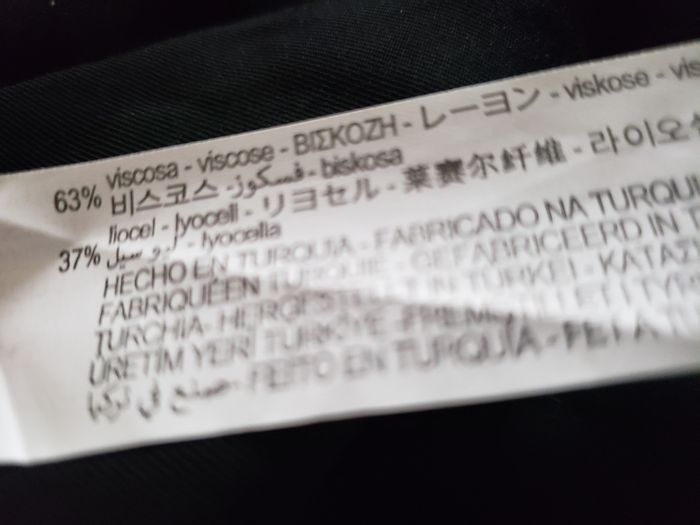 63% viscosa - viscose - ΒΙΣΚΟΖΗ - レーヨン - viskose -
비스코스 - فسكوز - biskosa
37% liocel - lyocell - リヨセル - 莱赛尔纤维 - 라이오
- lyocella
HECHO EN TURQUÍA - FABRICADO NA
FABRIQUÉ EN TURQUIE - GEFABRICEERD IN
TURCHIA - HERGESTELLT IN TÜRKEI -
ÜRETİM YERİ TÜRKİYE -
صنع في تركيا - FEITO EN TURQUÍA -